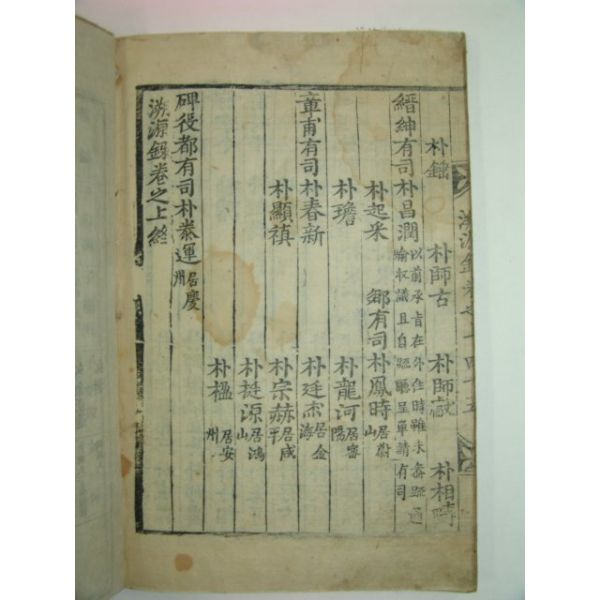 溯源錄卷之上 四十五
朴鏽 朴師古 朴師宬 朴相時
縉紳有司朴昌潤 以前承旨在外任時雖未每疏通喻収議且自疏聽呈單請有司
朴起采 鄕有司朴鳳時 居蔚山
朴璿 朴龍河 居密陽
章甫有司朴春新 朴廷杰 居金海
朴顯禛 朴宗赫 居咸平
朴挺源 居鴻山
朴楹 居安州
碑役都有司朴泰運 居慶州
溯源錄卷之上終